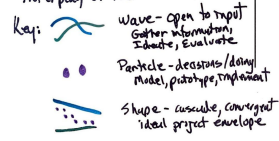 Key:
Wave - open to input
Gather information,
Ideate, Evaluate
Particle - decisions/doing
Model, prototype, implement
Shape - cascade, convergent
ideal project envelope